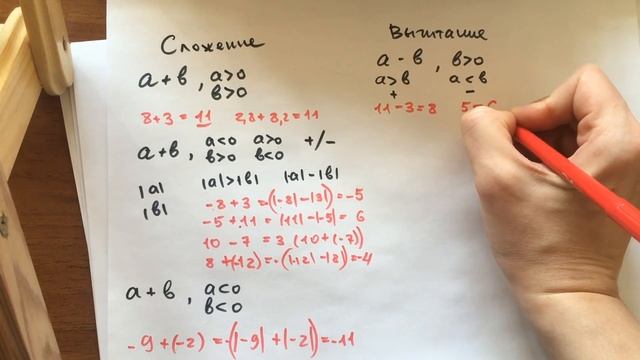 Сложение
a + b , a>0
b>0
8+3 = 11 2,8+8,2=11
a+b , a<0 a>0 +/-
b>0 b<0
|a| |a|>|b| |a|-|b|
|b|
-8+3 =-(|-8|-|3|)=-5
-5+11 = |11|-|-5|= 6
10 - 7 = 3 (10+(-7))
8 +(-12)=-(|-12|-|8|)=-4
a+b , a<0
b<0
-9+(-2)=-(|-9|+|-2|)=-11
Вычитание
a - b , b>0
a>b a<b
+ -
11-3=8 5-6